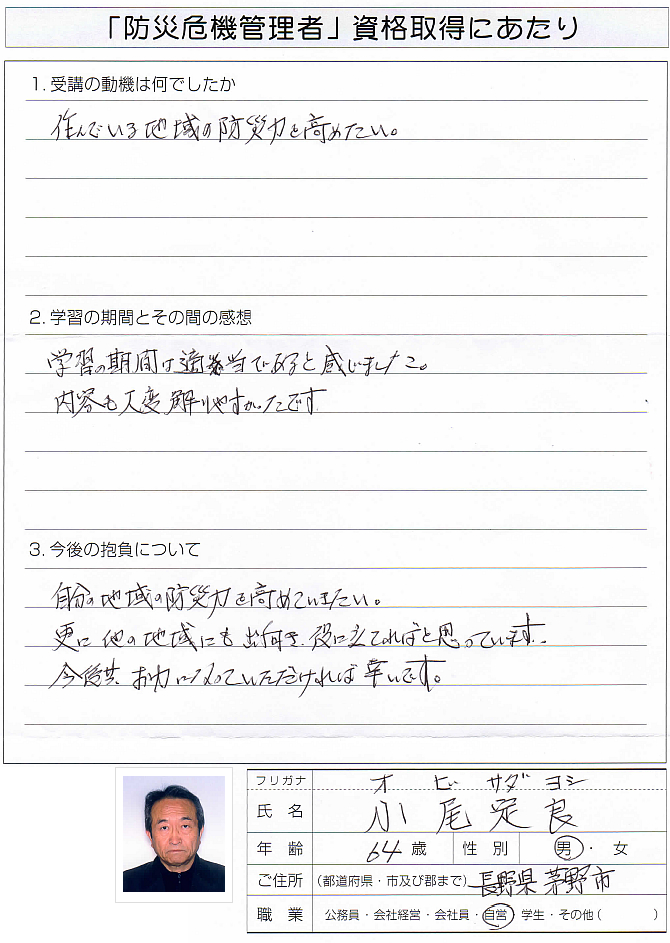 「防災危機管理者」資格取得にあたり
1. 受講の動機は何でしたか
住んでいる地域の防災力を高めたい。
2. 学習の期間とその間の感想
学習の期間は適当であると感じました。
内容も大変解りやすかったです
3. 今後の抱負について
自分の地域の防災力を高めていきたい。
更に他の地域にも出向き、役に立てればと思っています。
今後共お力になっていただければ幸いです。
フリガナ オビ サダヨシ
氏名 小尾定良
年齢 64歳 性別 男・女
ご住所 (都道府県・市及び郡まで) 長野県茅野市
職業 公務員・会社経営・会社員・自営・学生・その他( )